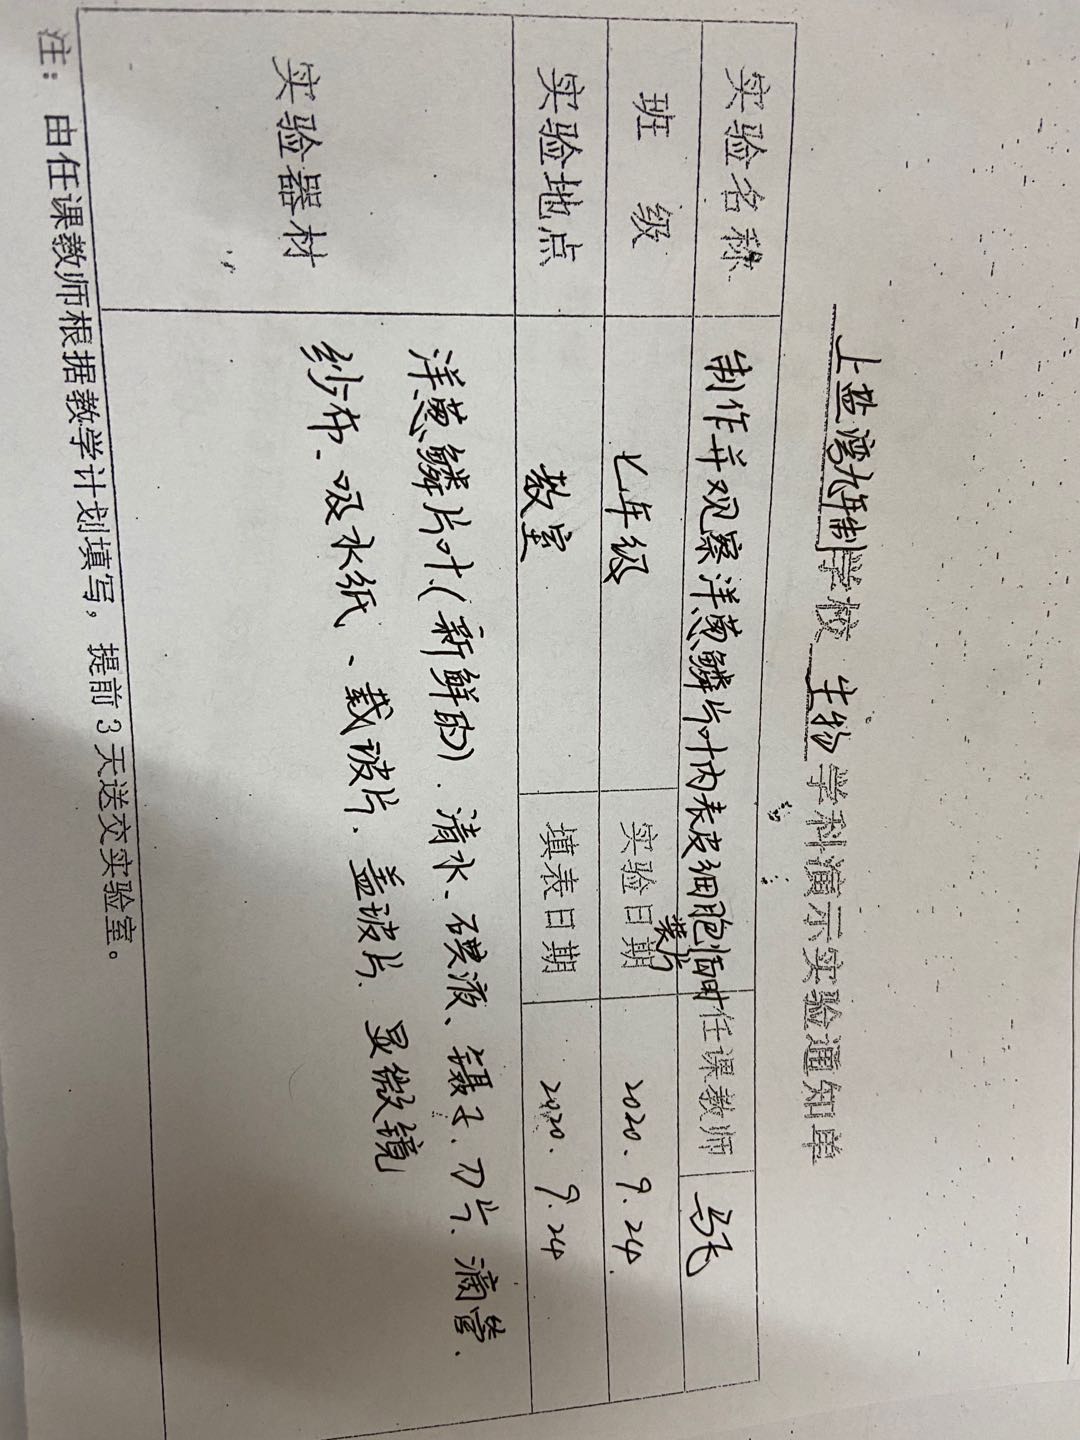 上盐湾九年制学校 生物学科演示实验通知单
实验名称 制作并观察洋葱鳞片叶内表皮细胞临时装片 任课教师 马飞
班 级 七年级 实验日期 2020.9.24.
实验地点 教室 填表日期 2020.9.24
实验器材 洋葱鳞片叶(新鲜的).清水、碘液、镊子.刀片.滴管.
纱布.吸水纸、载玻片.盖玻片.显微镜
注：由任课教师根据教学计划填写，提前3天送交实验室。